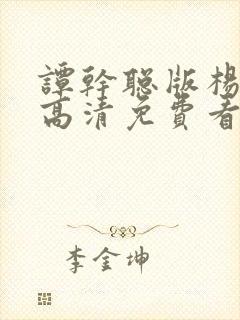 譚幹聰版楊
高清免費看
李金坤